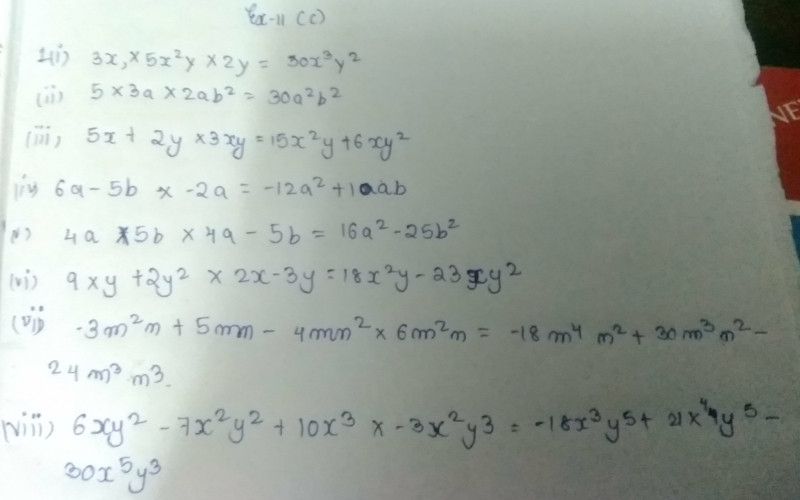 Ex-11 (c)
2(i) 3x × 5x²y × 2y = 30x³y²
(ii) 5 × 3a × 2ab² = 30a²b²
(iii) 5x + 2y × 3xy = 15x²y + 6xy²
(iv) 6a - 5b × -2a = -12a² + 10ab
(v) 4a + 5b × 4a - 5b = 16a² - 25b²
(vi) 9xy + 2y² × 2x - 3y = 18x²y - 23xy²
(vii) -3m²n + 5mn - 4mn² × 6m²n = -18m⁴n² + 30m³n² -
24m³n³.
(viii) 6xy² - 7x²y² + 10x³ × -3x²y³ = -18x³y⁵ + 21x⁴y⁵ -
30x⁵y³
NE